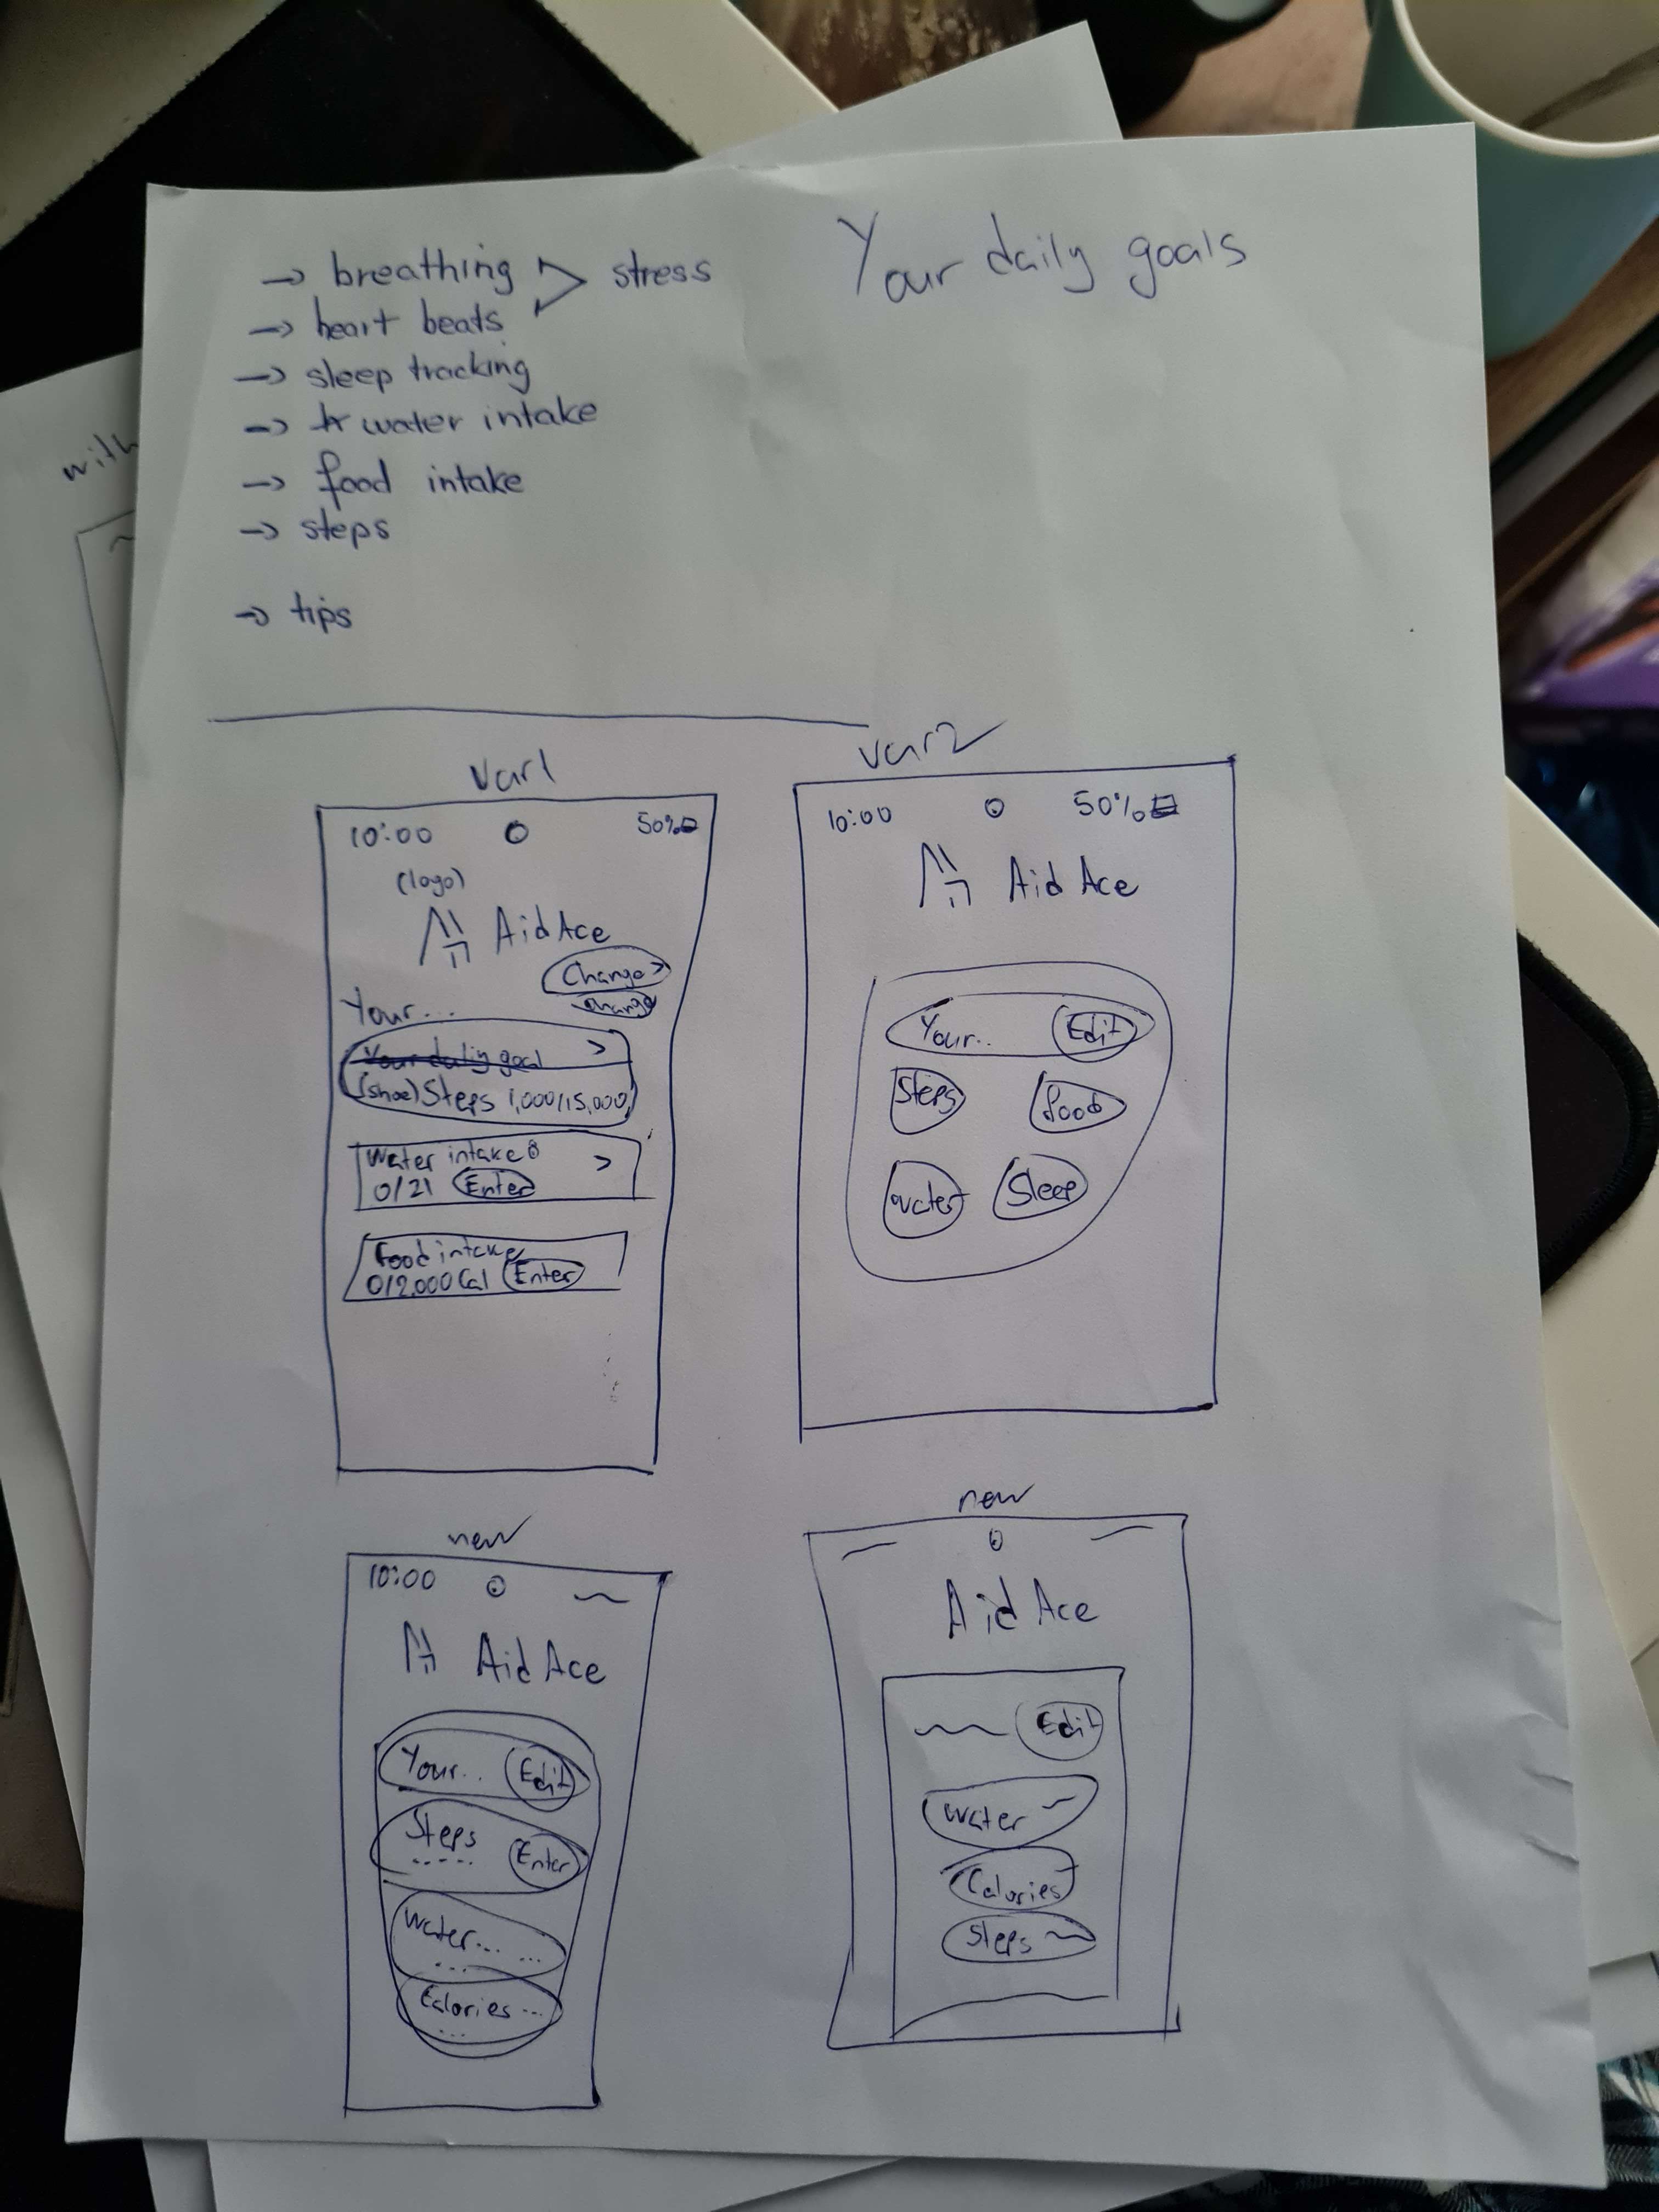 → breathing > stress
→ heart beats
→ sleep tracking
→ water intake
→ food intake
→ steps
→ tips
Your daily goals
with
var1
10:00 50%
(logo)
AidAce
Change >
change
Your...
Your daily goal >
(shoe) Steps 1,000/15,000
Water intake >
0/2l Enter
Food intake
0/2.000 Cal Enter
var2
10:00 50%
Aid Ace
Your.. Edit
Steps food
water Sleep
new
10:00
Aid Ace
Your.. Edit
Steps
..... Enter
Water... ...
...
Calories ...
...
new
Aid Ace
Edit
Water
Calories
Steps